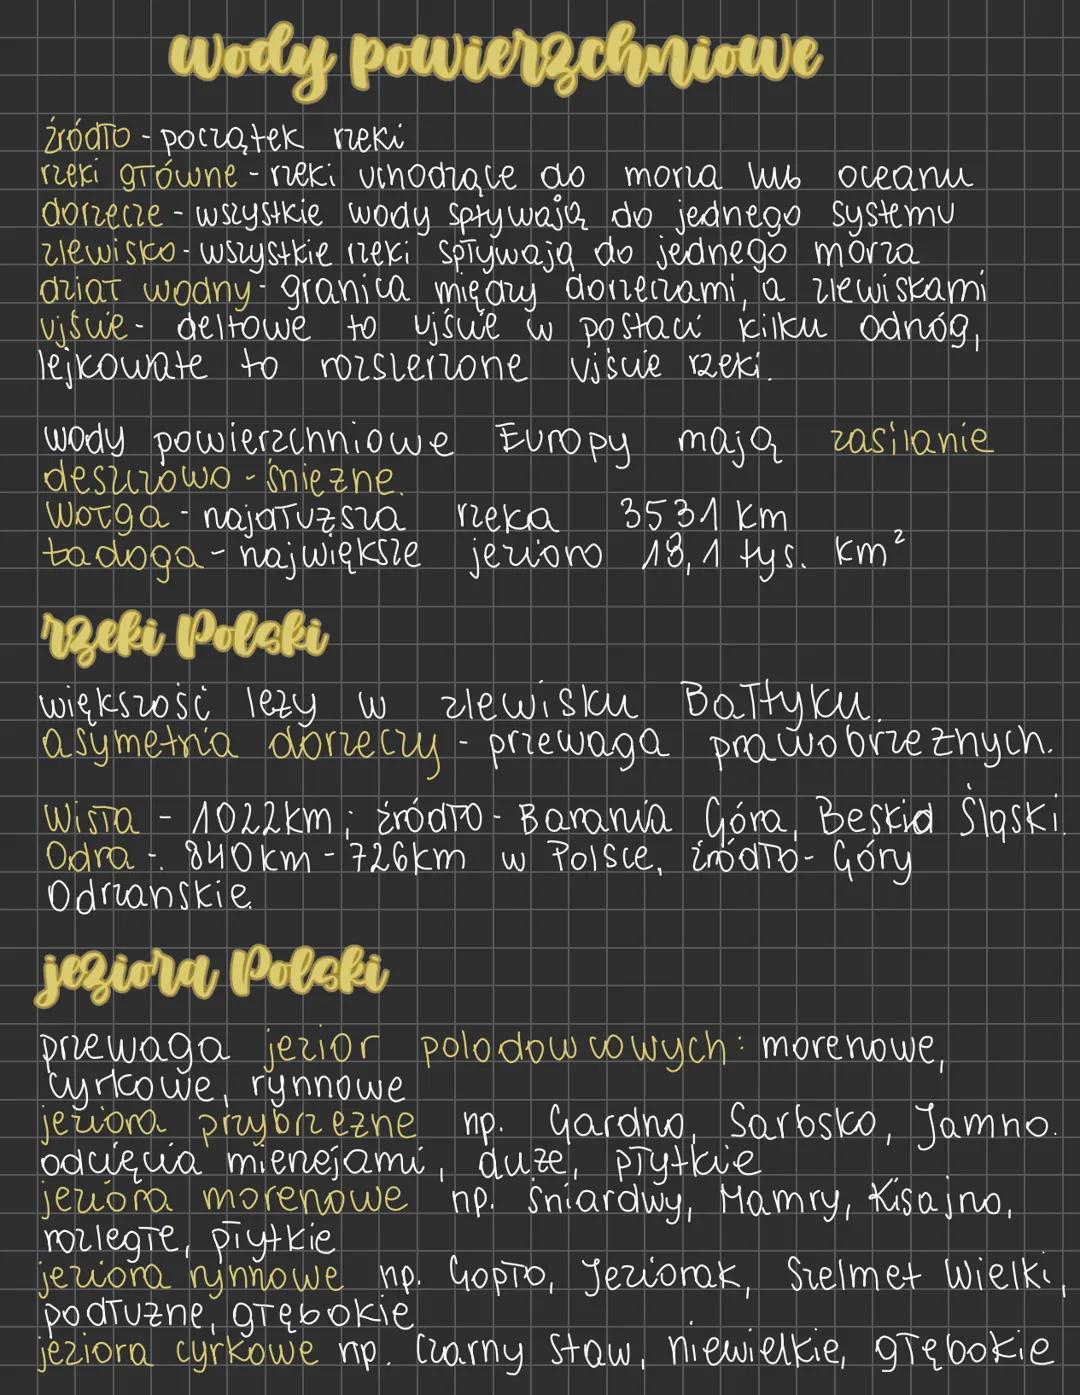 wody powierzchniowe
źródło - początek rzeki
rzeki główne - rzeki uchodzące do morza lub oceanu
dorzecze - wszystkie wody spływają do jednego systemu
zlewisko - wszystkie rzeki spływają do jednego morza
dział wodny - granica między dorzeczami, a zlewiskami
ujście - deltowe to ujście w postaci kilku odnóg,
lejkowate to rozszerzone ujście rzeki.
wody powierzchniowe Europy mają zasilanie
deszczowo - śnieżne.
Wołga - najdłuższa rzeka 3531 km
Ładoga - największe jezioro 18,1 tyś. km²
rzeki Polski
większość leży w zlewisku Bałtyku.
asymetria dorzeczy - przewaga prawobrzeżnych.
Wisła - 1022km; źródło - Barania Góra, Beskid Śląski.
Odra - 840km - 726km w Polsce, źródło - Góry
Odrzańskie.
jeziora Polski
przewaga jezior polodowcowych: morenowe,
cyrkowe, rynnowe
jeziora przybrzeżne np. Gardno, Sarbsko, Jamno.
odcięcia mierzejami, duże, płytkie
jeziora morenowe np. Śniardwy, Mamry, Kisajno,
rozległe, płytkie
jeziora rynnowe np. Gopło, Jeziorak, Szelmet Wielki,
podłużne, głębokie
jeziora cyrkowe np. Czarny Staw, niewielkie, głębokie